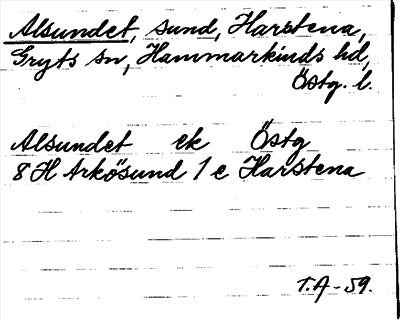 Alsundet, sund, Harstena,
Gryts sn, Hammarkinds hd,
Östg. l.
Alsundet ek Östg
8 H Arkösund 1 e Harstena
T.A-59.